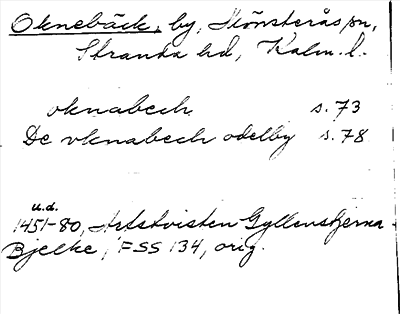 Oknebäck, by, Mönsterås sn,
Stranda hd, Kalm. l.
oknabech s. 73
De oknabech odelby s. 78
u.d.
1451-80, Arvstvisten Gyllenstjerna -
Bjelke, FSS 134, orig.